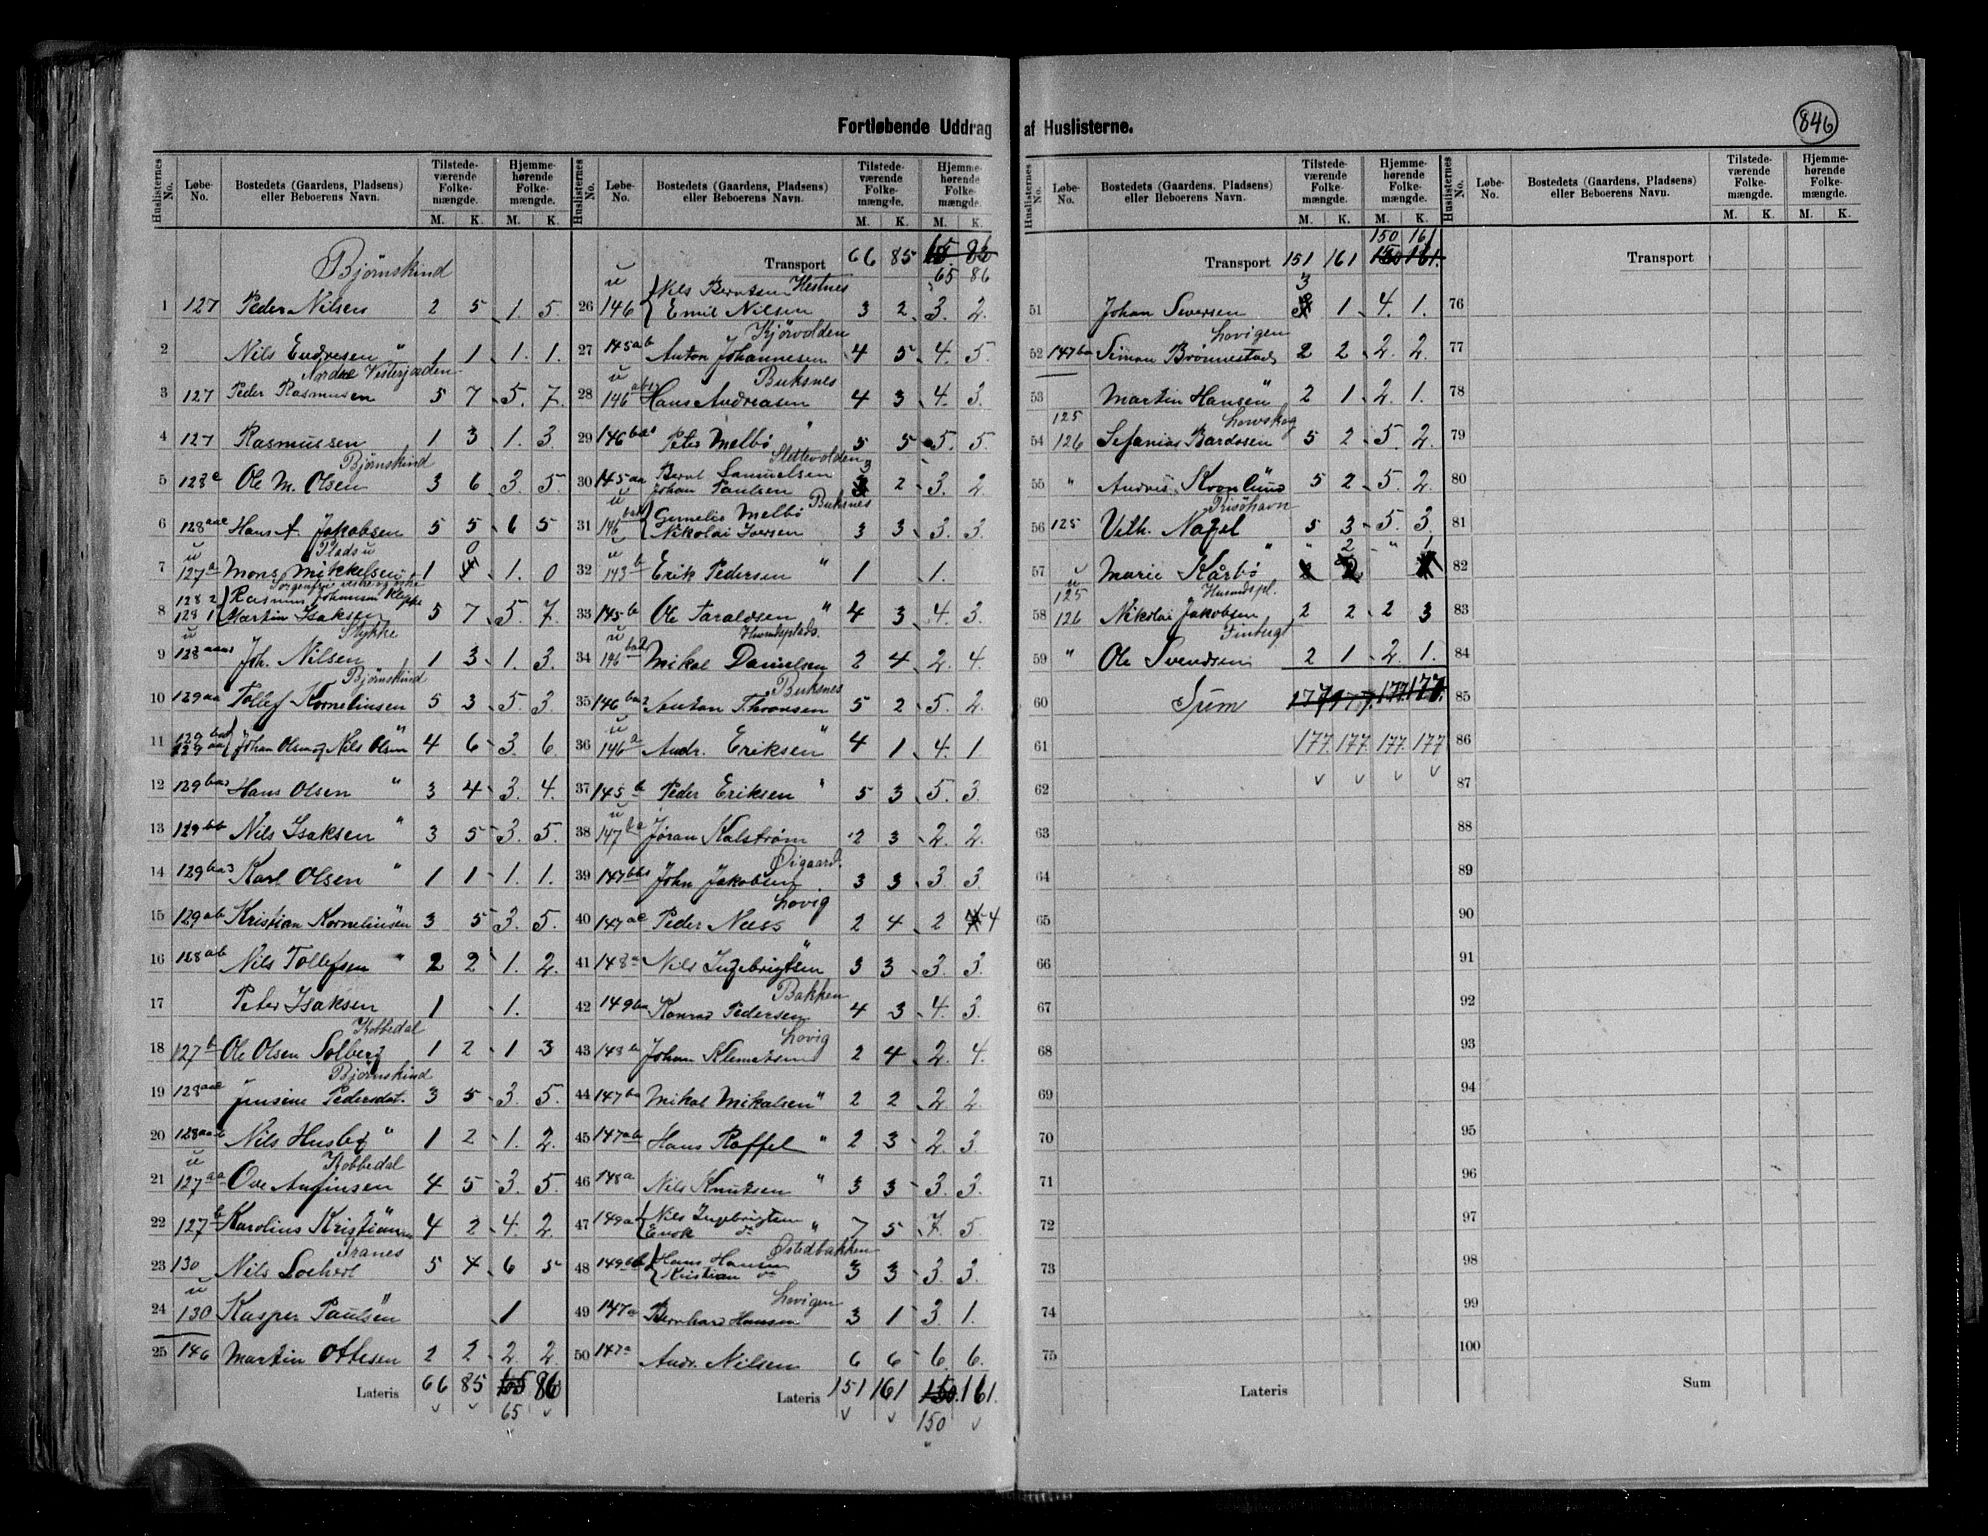 846
Fortløbende Uddrag af Huslisterne.
Huslisternes No. | Løbe-No. | Bostedets (Gaardens, Pladsens) eller Beboerens Navn. | Tilstedeværende Folkemængde. M. K. | Hjemmehørende Folkemængde. M. K.
Bjørnskind
1 127 Peder Nilsen 2 5 1. 5.
2 Nils Endresen " 1 1 1. 1.
Nordre Vesterjorden
3 127 Peder Rasmusen 5 7 5. 7.
4 127 Rasmussen 1 3 1. 3.
Bjørnskind
5 128 Ole M. Olsen 3 6 3. 5.
6 128 Hans A. Jakobsen 5 5 6 5
Plads u
7 127a Mons Mikkelsen 1 0 1. 0
8 128 2 128 1 Rasmus Johannesen Martin Isaksen 5 7 5. 7.
Stykke
9 128 Joh. Nilsen 1 3 1. 3.
Bjørnskind
10 129aa Tollef Kornelinsen 5 3 5. 3.
11 Johan Olsen og Nils Olsen " 4 6 3. 6.
12 129 Hans Olsen " 3 4 3. 4.
13 129bb Nils Isaksen " 3 5 3. 5.
14 129 Karl Olsen " 1 1 1. 1.
15 129ab Kristian Kornelinsen 3 5 3. 5.
16 128ab Nils Tollefsen " 2 2 1. 2.
17 Peter Isaksen 1 1.
Kobbedal
18 127b Ole Olsen Solberg 1 2 1 3
Bjørnskind
19 128 Jensine Pedersdat. 3 5 3. 5.
20 128 Nils Husby " 1 2 1. 2.
Kobbedal
21 127aa Ove Anfinsen 4 5 3. 5.
22 127b Karolius Kristiansen 4 2 4. 2.
Tranes
23 130 Nils Lochert 5 4 6 5
24 130 Kasper Paulsen 1
25 146 Martin Ottesen 2 2 2. 2.
Lateris 66 85 65 86
65
Transport 66 85 65 86
65 86
26 146 Nils Berntsen Hestnes Emil Nilsen 3 2 3. 2.
Kjørvolden
27 145ab Anton Johannesen 4 5 4. 5.
Buksnes
28 146 Hans Andreasen 4 3 4. 3.
29 146 Peter Melbø " 5 5 5. 5.
Slettevolden
30 145aa Bernt Samuelsen Johan Paulsen 3 2 3. 2
Buksnes
31 146 Cornelis Melbø Nikolai Iversen 3 3 3. 3.
32 143b Erik Pedersen " 1 1.
33 145b Ole Taraldsen " 4 3 4. 3.
Husmdsplads.
34 146 Mikal Danielsen 2 4 2. 4.
Buksnes
35 146 Anton Thronsen 5 2 5. 2.
36 146a Andr. Eriksen " 4 1 4. 1
37 145b Peder Eriksen " 5 3 5. 3.
38 147 Jøran Kalstrøm 2 3 2 2.
Øigaard.
39 147 John Jakobsen 3 3 3. 3.
Lovig
40 147 Peder Næss 2 4 2 4
41 148a Nils Ingebrigtsen " 3 3 3. 3.
Bakken
42 149ba Konrad Pedersen 4 3 4. 3.
Lovig
43 148b Johan Klemetsen 2 4 2. 4.
44 147ba Mikal Mikalsen " 2 2 2. 2.
45 147ab Hans Roffel " 2 3 2. 3.
46 148a Nils Knutsen " 3 3 3. 3.
47 149a Nils Ingebrigtsen Enok do " 7 5 7. 5
Østedbakken
48 149bb Hans Hansen Kristian do 3 3 3. 3.
Lovigen
49 147a Bernhard Hansen 3 1 3. 1.
50 147a Andr. Nilsen 6 6 6. 6.
Lateris 151 161 150. 161.
150
150 161
Transport 151 161 150 161.
51 Johan Seversen 3 1 4. 1.
Lovigen
52 147ba Simon Brønnestad 2 2 2. 2.
53 Martin Hansen " 2 1 2. 1.
Lovskog
54 125 126 Sefanias Bardosen 5 2 5. 2.
55 " Andreas Kornlius 5 2 5. 2.
Risøhavn
56 125 Vilh. Nagel 5 3 5. 3.
57 Marie Kårbø " " 2 " 1
Husmdspl.
58 125 126 Nikolai Jakobsen 2 2 2 3
Finbugt
59 " Ole Svendsen 2 1 2. 1.
60 Sum 177 177. 177 177.
61 177. 177. 177. 177
62
63
64
65
66
67
68
69
70
71
72
73
74
75
Lateris
Transport
76
77
78
79
80
81
82
83
84
85
86
87
88
89
90
91
92
93
94
95
96
97
98
99
100
Sum